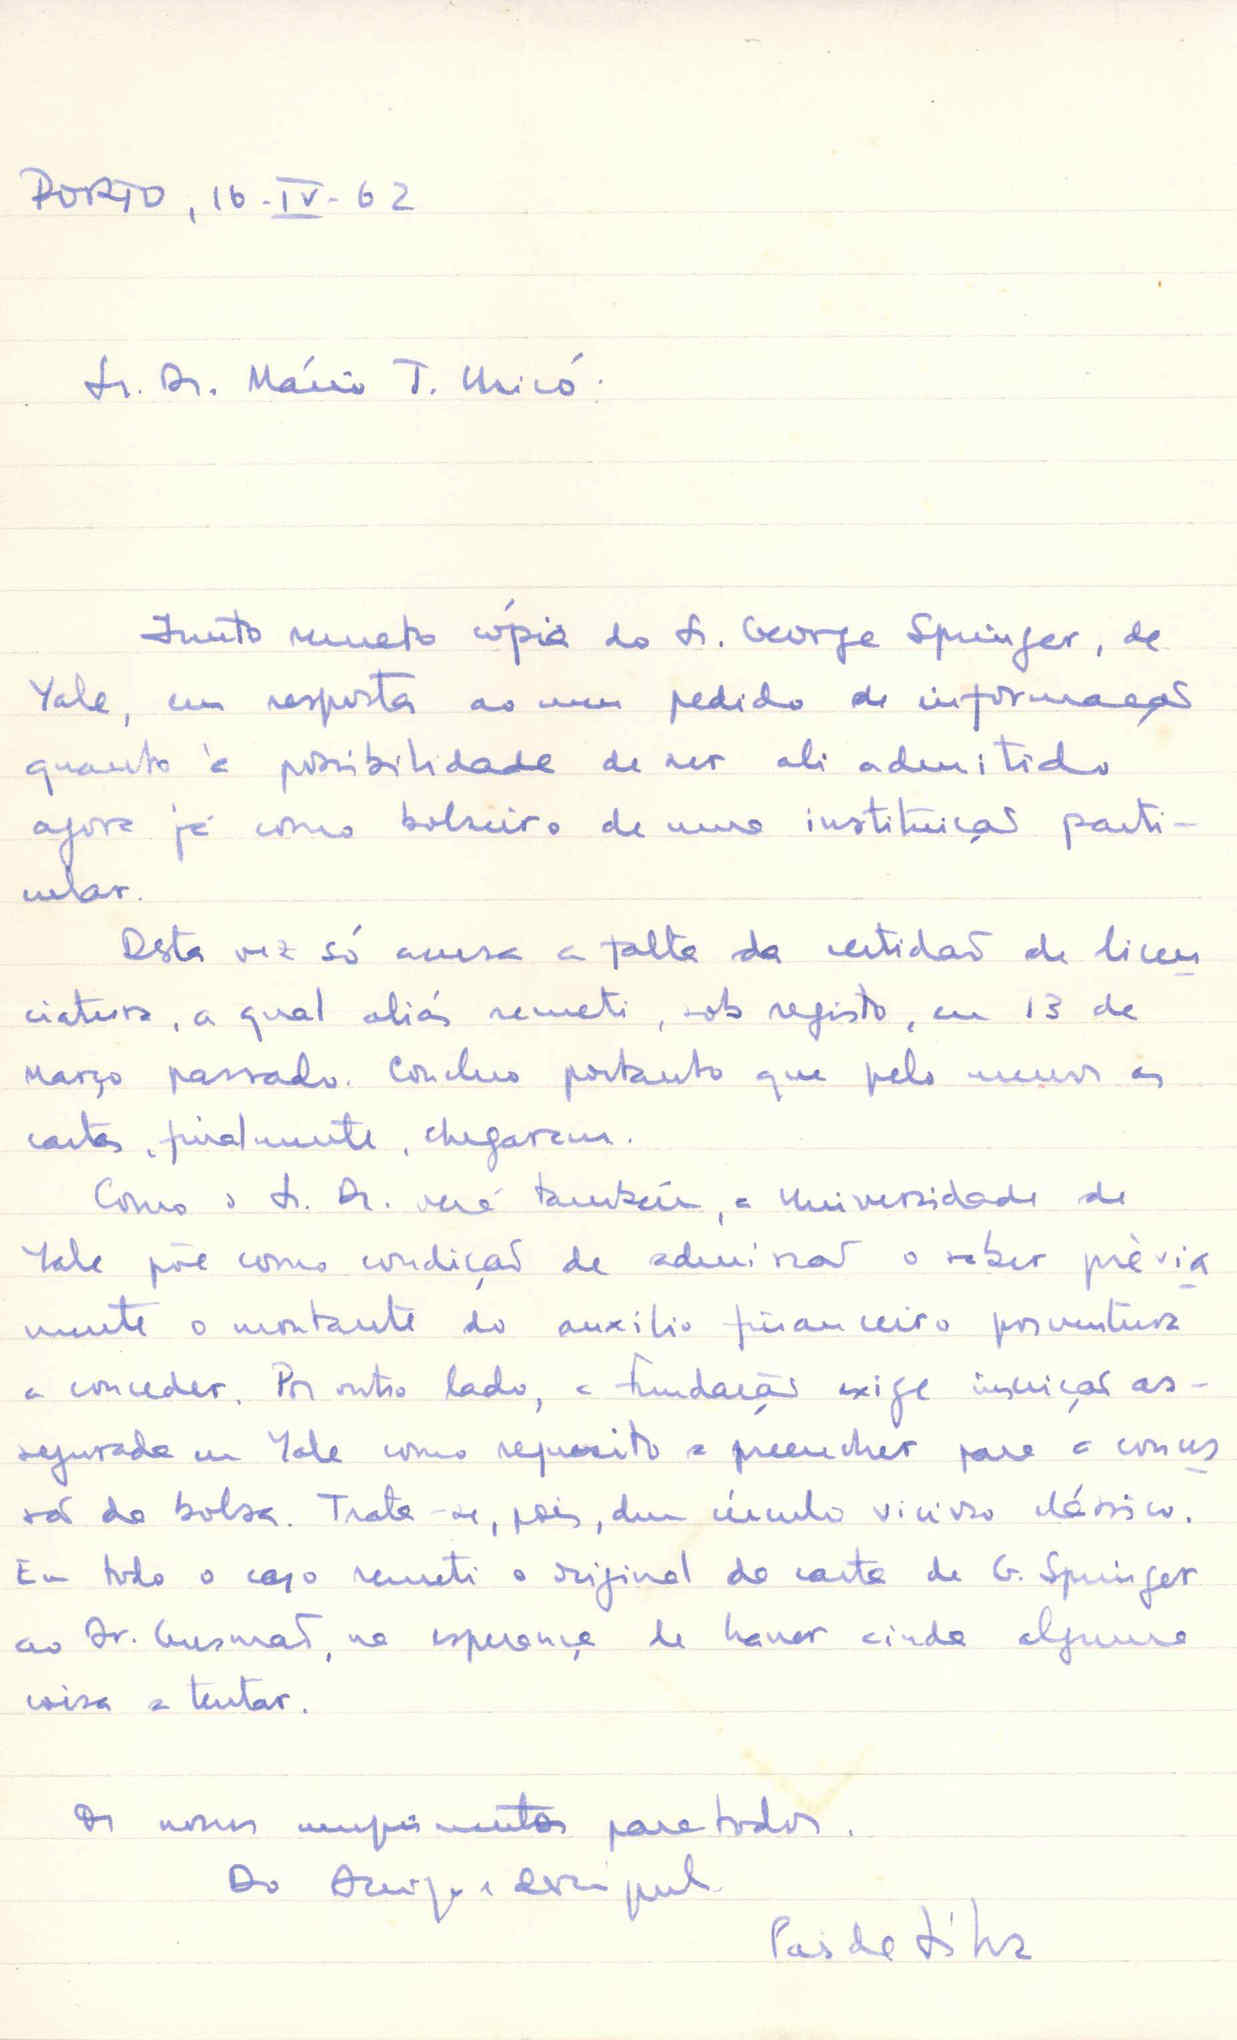 PORTO, 16-IV-62
Sr. Dr. Mário T. Chicó:
Junto remeto cópia do Sr. George Springer, de
Yale, em resposta ao meu pedido de informação
quanto à possibilidade de ser ali admitido
agora já como bolseiro de uma instituição parti-
cular.
Desta vez só acusa a falta da certidão de licen
ciatura, a qual aliás remeti, sob registo, em 13 de
Março passado. Concluo portanto que pelo menos as
cartas, finalmente, chegaram.
Como o Sr. Dr. verá também, a Universidade de
Yale põe como condição de admissão o saber prèvia
mente o montante do auxílio financeiro porventura
a conceder. Por outro lado, a Fundação exige inscrição as-
segurada em Yale como requesito a preencher para a conces
são da bolsa. Trata-se, pois, dum círculo vicioso clássico.
Em todo o caso remeti o original da carta de G. Springer
ao Dr. Gusmão, na esperança de haver ainda alguma
coisa a tentar.
Os nossos cumprimentos para todos.
Do Amigo e discípul
Pais da Silva